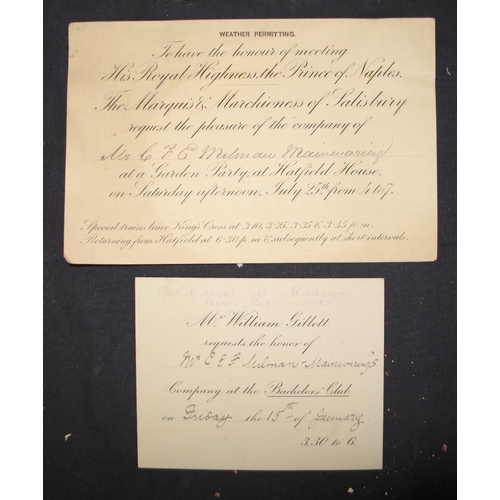 WEATHER PERMITTING.
To have the honour of meeting
His Royal Highness, the Prince of Naples,
The Marquis & Marchioness of Salisbury
request the pleasure of the company of
Mr C F E Milman Mainwaring
at a Garden Party, at Hatfield House,
on Saturday afternoon, July 25th from 4 to 7.
Special trains leave King's Cross at 3·10, 3·25, 3·35 & 3·45 p.m.
Returning from Hatfield at 6·30 p.m. & subsequently at short intervals.
Exhibition of Radium
Mr. William Gillett
requests the honor of
Mr C E F Milman-Mainwaring's
Company at the Bachelors' Club
on Friday the 15th of January
3.30 to 6.